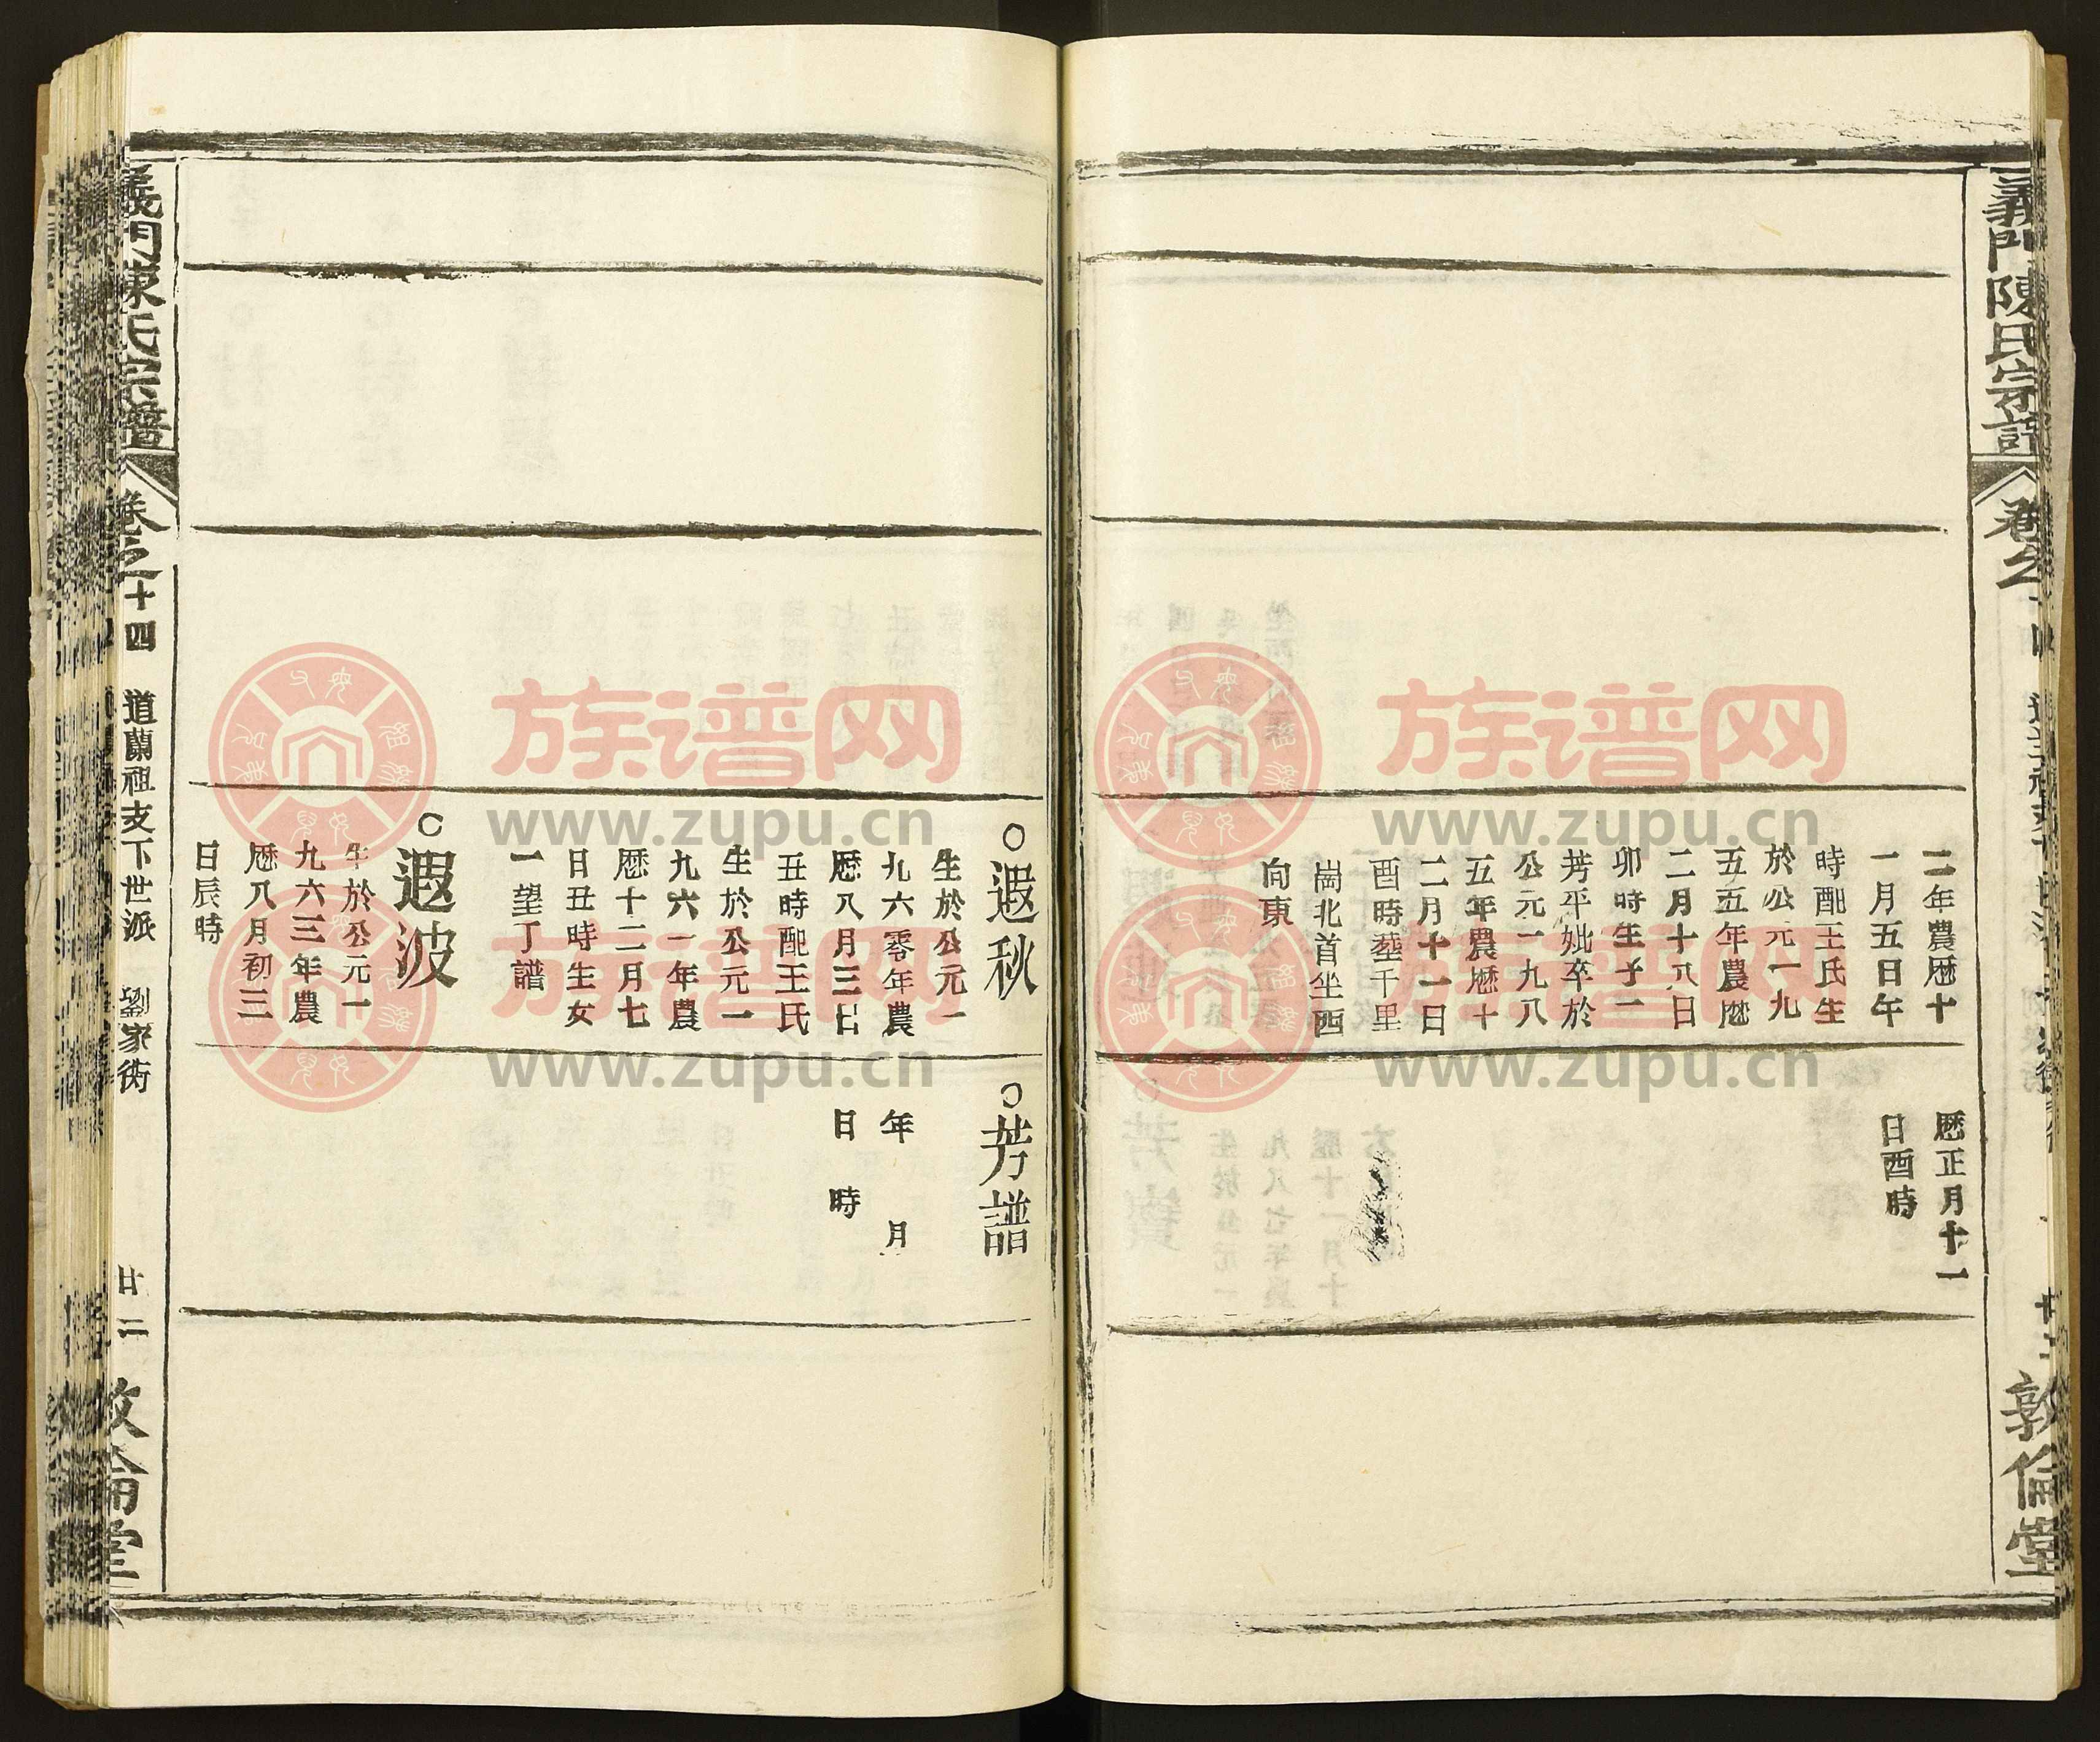 義門陳氏宗譜
卷之十四
廿二
敦倫堂
二年農歷十
一月五日午
時配王氏生
於公元一九
五五年農歷
二月十八日
卯時生子一
芳平妣卒於
公元一九八
五年農歷十
二月十一日
酉時塟千里
崗北首坐西
向東
歷正月十一
日酉時
遐秋
生於公元一
九六零年農
歷八月三日
丑時配王氏
生於公元一
九六一年農
歷十二月七
日丑時生女
一望丁譜
遐波
生於公元一
九六三年農
歷八月初三
日辰時
芳譜
年 月
日 時
義門陳氏宗譜
卷之十四
道蘭祖支下世派
劉家衖
廿二
敦倫堂
族谱网
www.zupu.cn
族谱网
www.zupu.cn
族谱网
www.zupu.cn
族谱网
www.zupu.cn